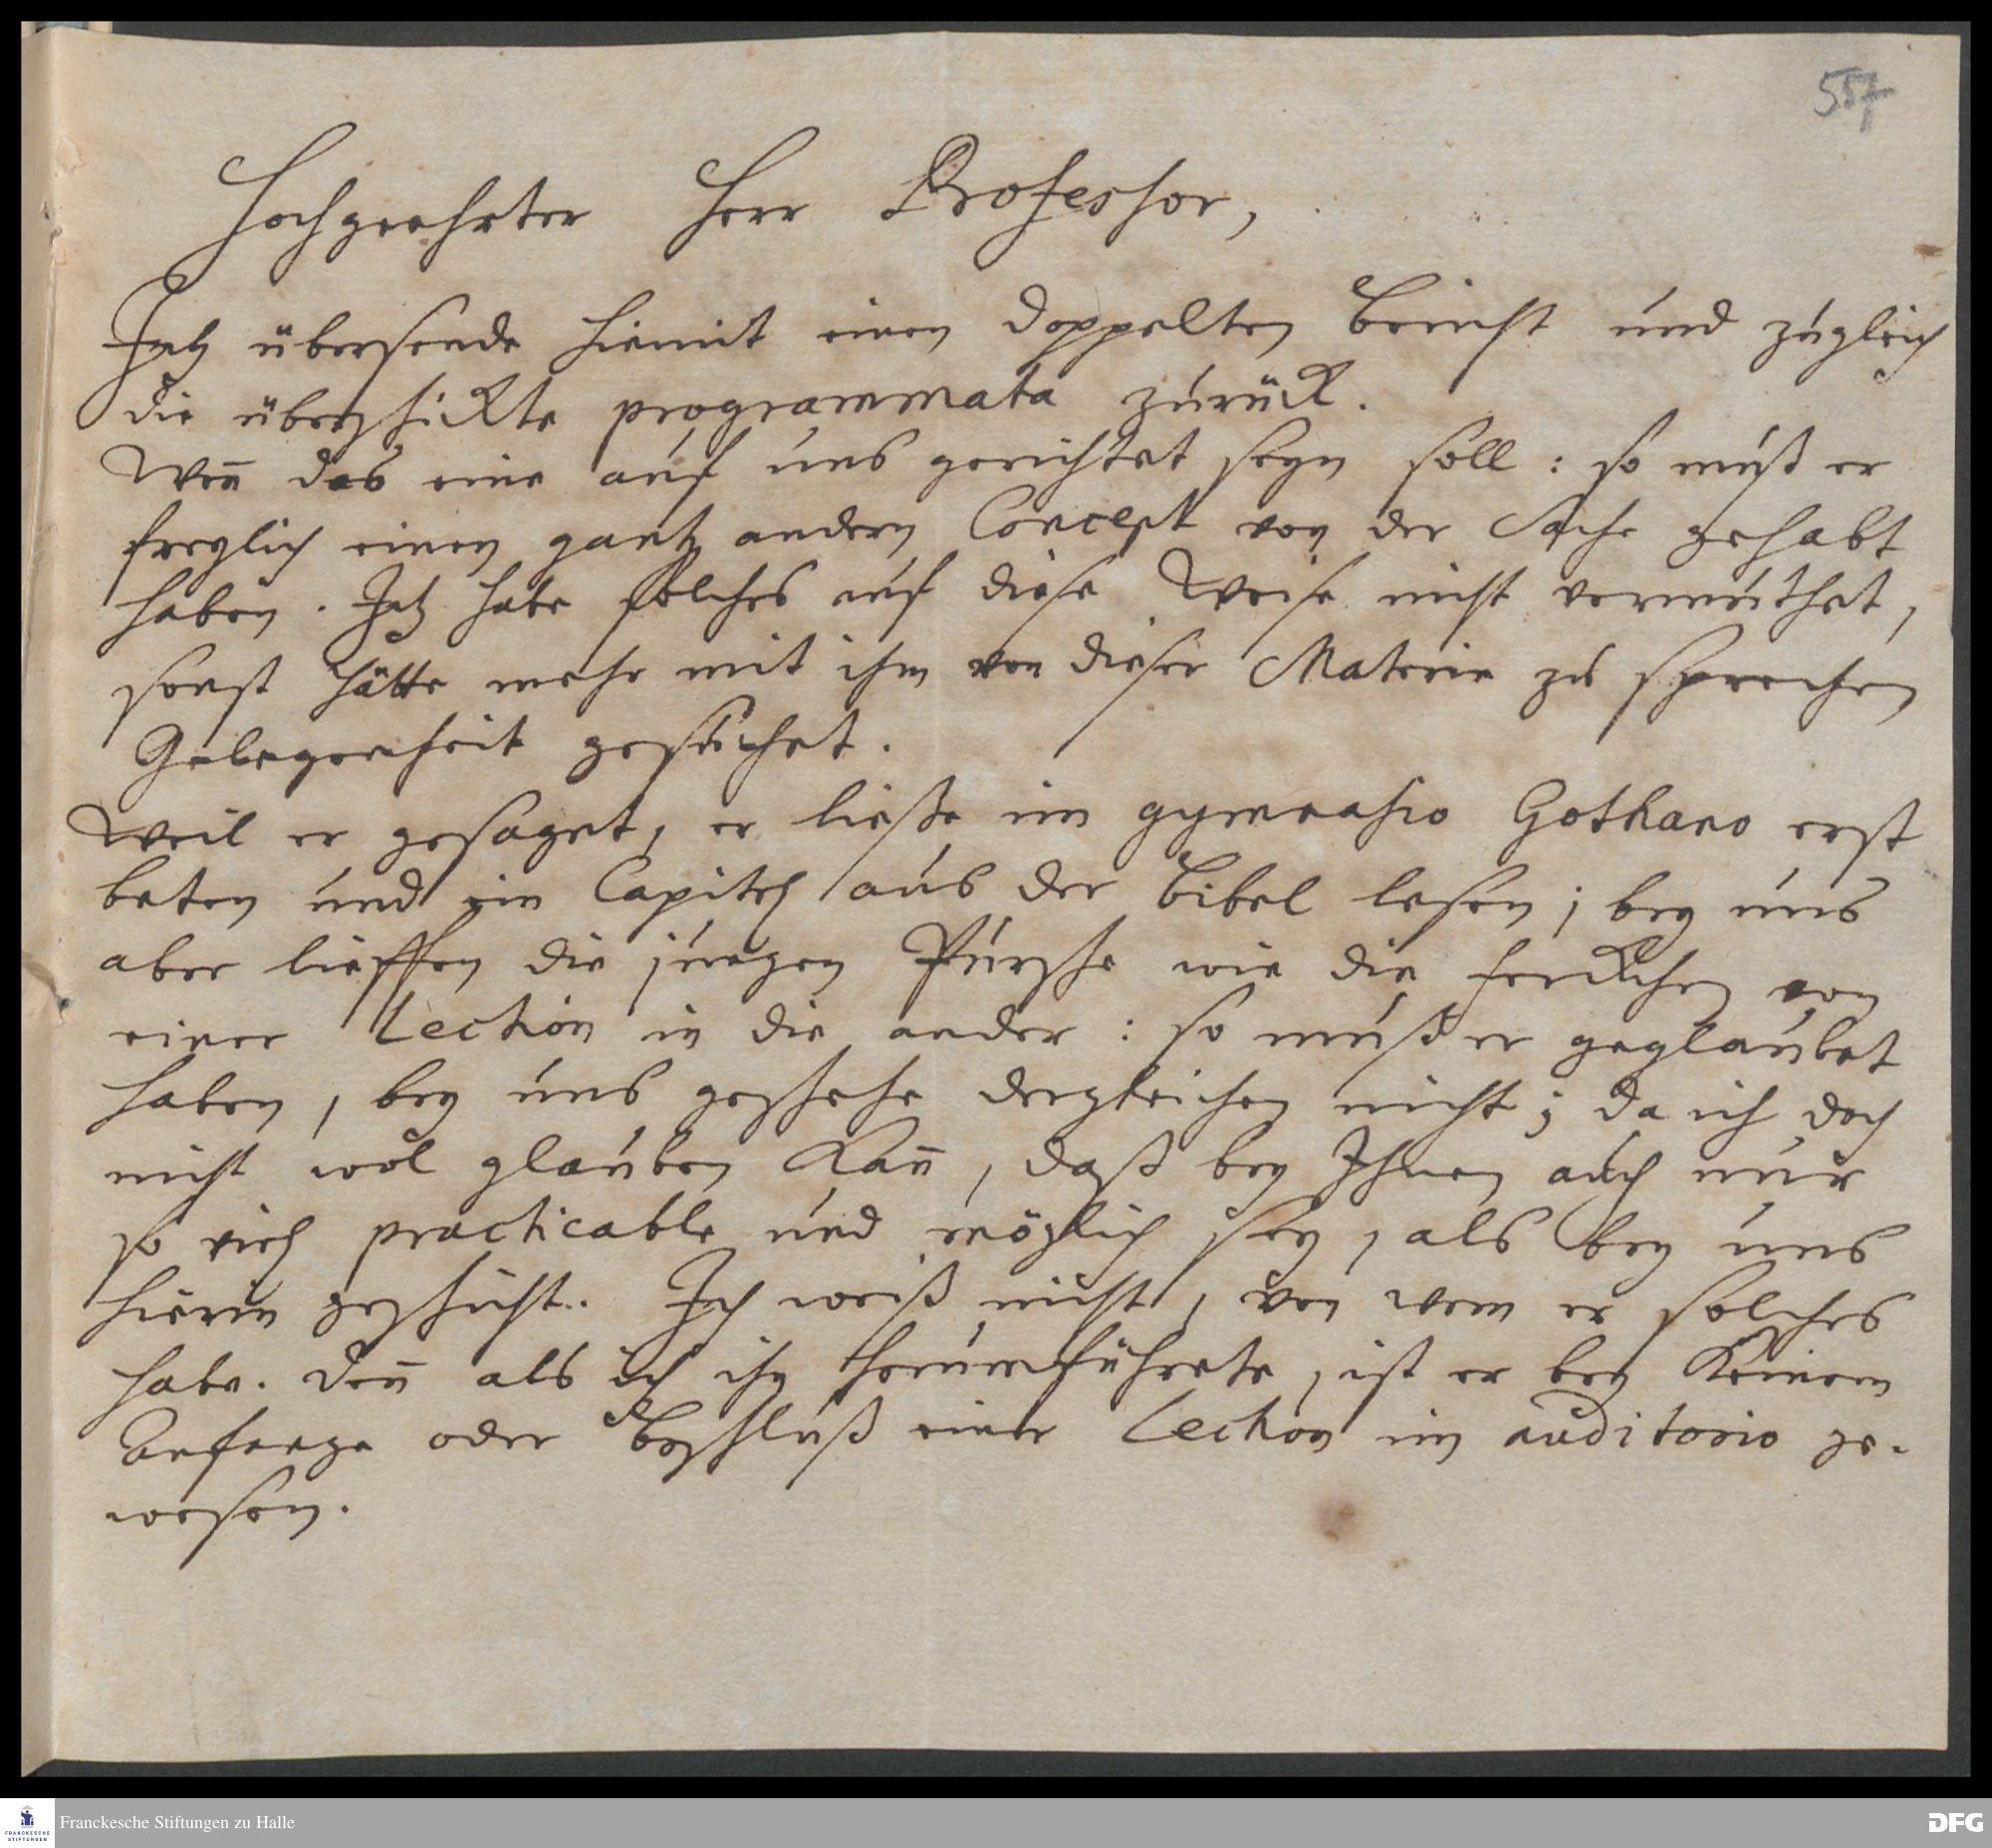 557
Hochgeehrter Herr Professor,
Ich übersende hiemit einen doppelten Bericht und zugleich
die überschickte programmata zurück.
Weñ das eine auf uns gerichtet seyn soll: so muß er
freylich einen gantz andern Concept von der Sache gehabt
haben. Ich habe solches auf diese Weise nicht vermuthet,
sonst hätte mehr mit ihm von dieser Materie zu sprechen
Gelegenheit gesuchet.
Weil er gesaget, er ließe im gymnasio Gothano erst
beten und ein Capitel aus der Bibel lesen; bey uns
aber lieffen die jungen Pursche wie die Ferckchen von
einer Lection in die ander: so muß er geglaubet
haben, bey uns geschehe dergleichen nicht; da ich doch
nicht wol glauben kañ, daß bey Ihnen auch nur
so viel practicable und möglich sey, als bey uns
hierin geschicht. Ich weiß nicht, von wem er solches
habe. Deñ als ich ihn herumführete, ist er bey keinem
Anfange oder Beschluß einer Lection im auditorio ge-
wesen.
Franckesche Stiftungen zu Halle
FRANCKESCHE
STIFTUNGEN
DFG